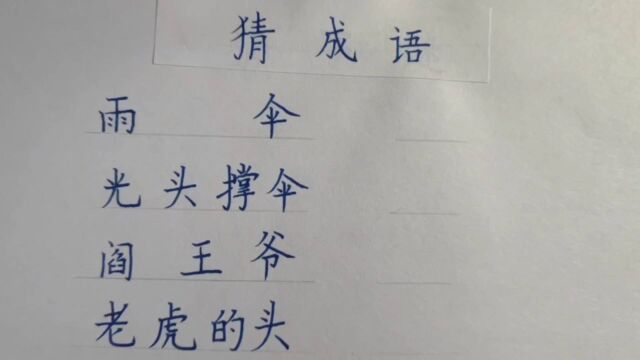 猜成语
雨伞
光头撑伞
阎王爷
老虎的头